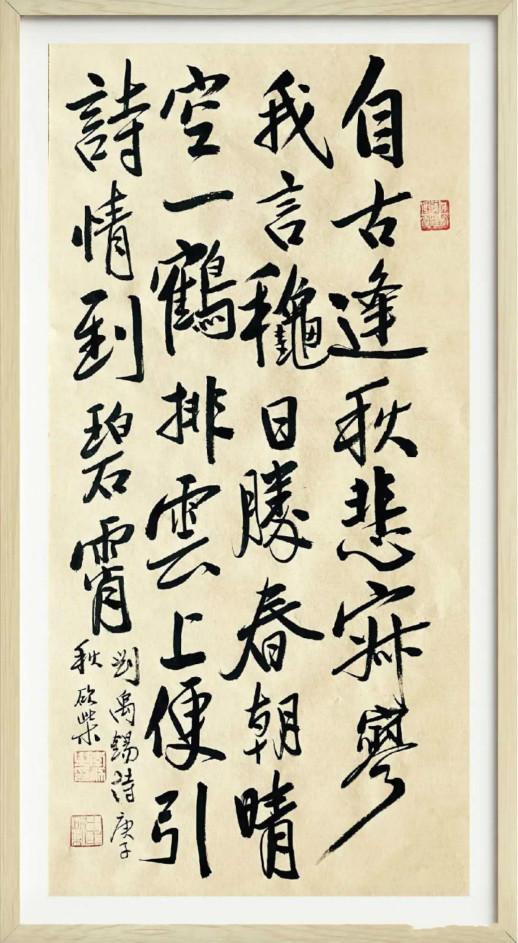 自古逢秋悲寂寥
我言穐日勝春朝晴
空一鶴排雲上便引
詩情到碧霄
劉禹錫詩庚子
秋欣柴